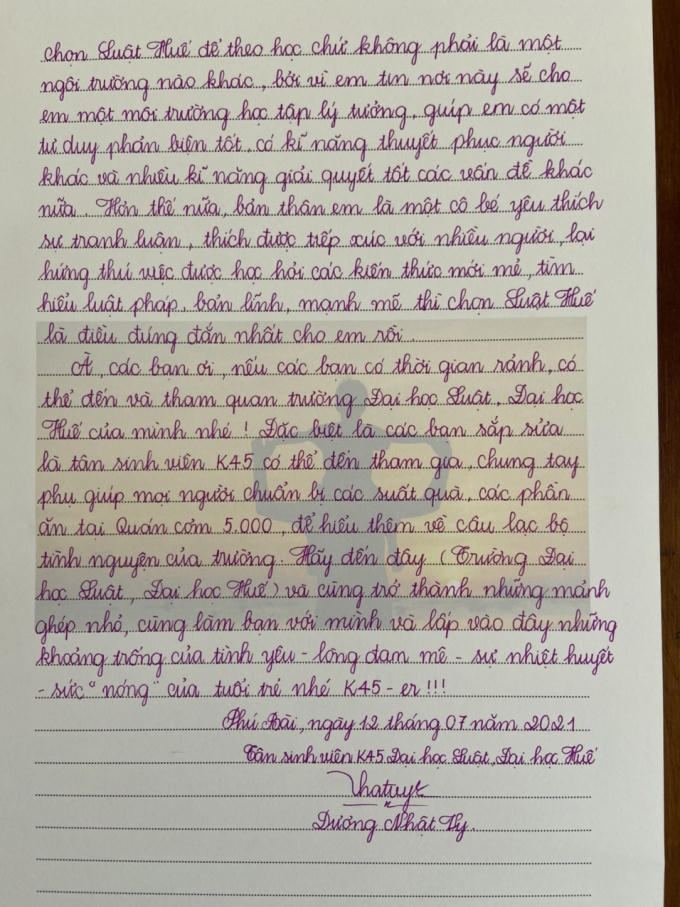 chọn Luật Huế để theo học chứ không phải là một
ngôi trường nào khác, bởi vì em tin nơi này sẽ cho
em một môi trường học tập lý tưởng, giúp em có một
tư duy phản biện tốt, có kĩ năng thuyết phục người
khác và nhiều kĩ năng giải quyết tốt các vấn đề khác
nữa. Hơn thế nữa, bản thân em là một cô bé yêu thích
sự tranh luận, thích được tiếp xúc với nhiều người, lại
hứng thú việc được học hỏi các kiến thức mới mẻ, tìm
hiểu luật pháp, bản lĩnh, mạnh mẽ thì chọn Luật Huế
là điều đúng đắn nhất cho em rồi.
À, các bạn ơi, nếu các bạn có thời gian rảnh, có
thể đến và tham quan trường Đại học Luật, Đại học
Huế của mình nhé! Đặc biệt là các bạn sắp sửa
là tân sinh viên K45 có thể đến tham gia, chung tay
phụ giúp mọi người chuẩn bị các suất quà, các phần
ăn tại Quán cơm 5.000, để hiểu thêm về câu lạc bộ
tình nguyện của trường. Hãy đến đây (Trường Đại
học Luật, Đại học Huế) và cùng trở thành những mảnh
ghép nhỏ, cùng làm bạn với mình và lấp vào đây những
khoảng trống của tình yêu - lòng đam mê - sự nhiệt huyết
- sức "nóng" của tuổi trẻ nhé K45-er!!!
Phú Bài, ngày 12 tháng 07 năm 2021
Tân sinh viên K45 Đại học Luật, Đại học Huế
Dương Nhật Vy.